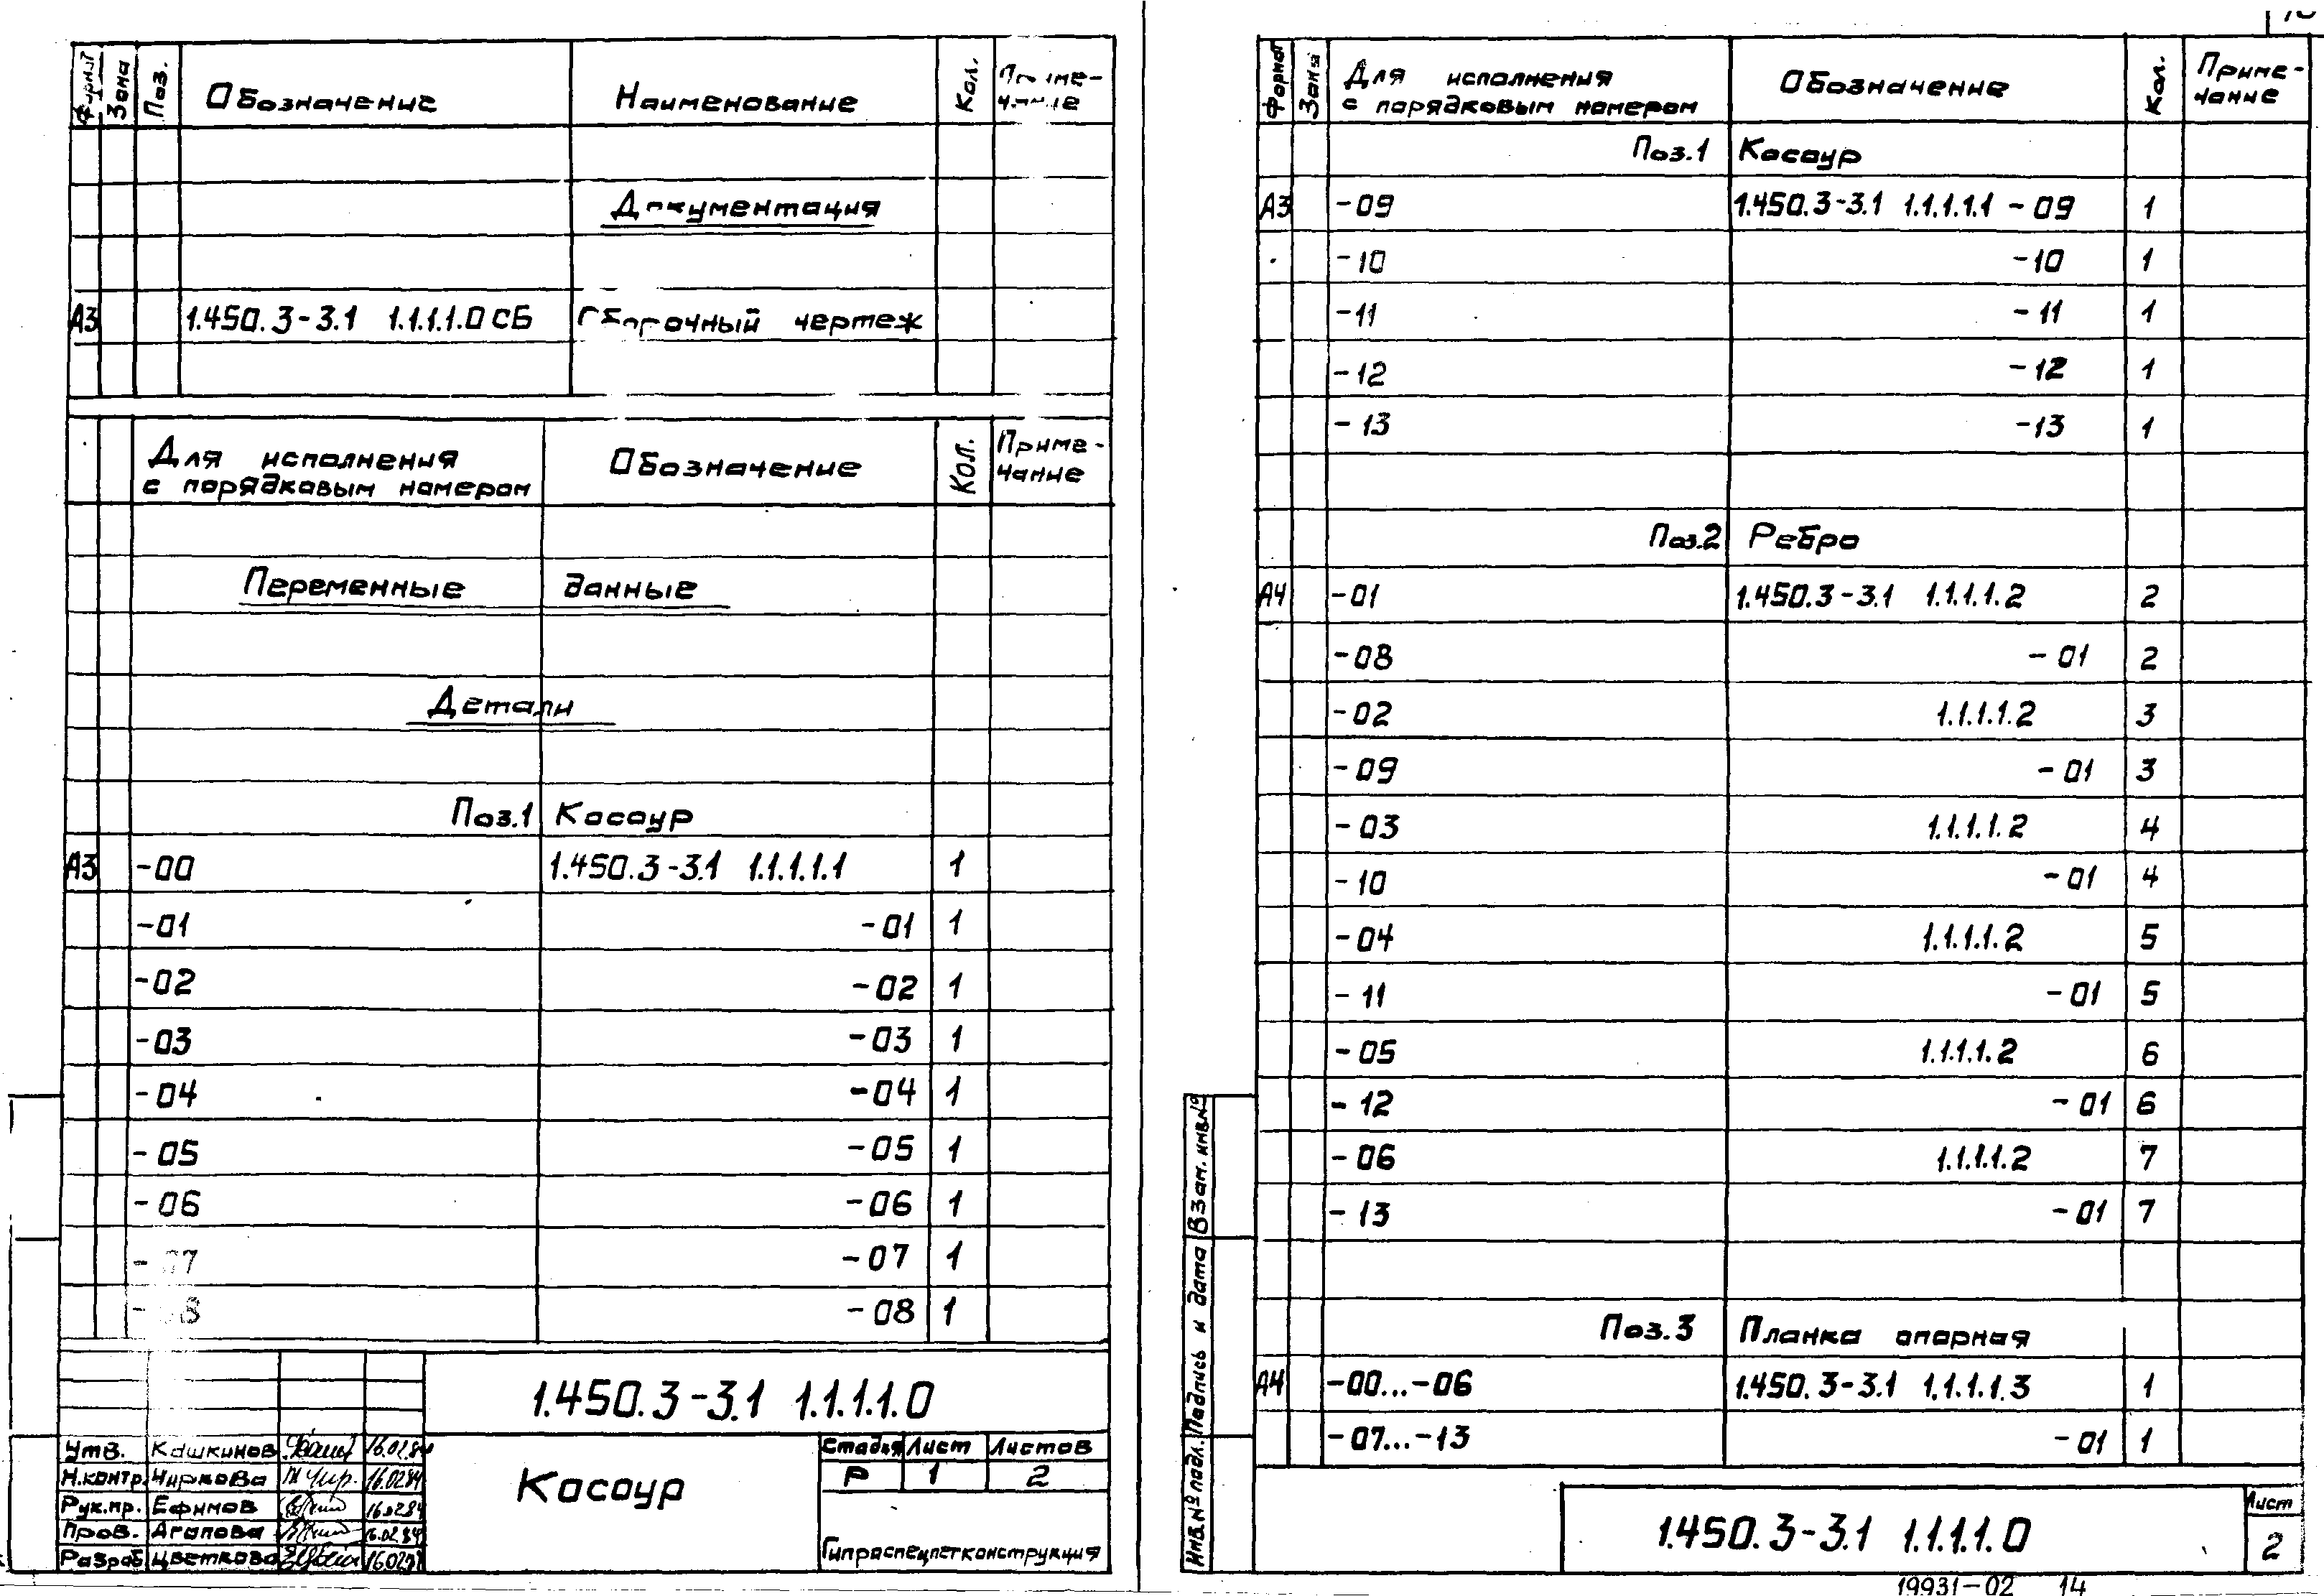 Формат Зона Поз. Обозначение Наименование Кол. Примечание
Документация
А3 1.450.3-3.1 1.1.1.1.0СБ Сборочный чертеж
Для исполнения с порядковым номером Обозначение Кол. Примечание
Переменные данные
Детали
Поз.1 Косоур
А3 -00 1.450.3-3.1 1.1.1.1.1 1
-01 -01 1
-02 -02 1
-03 -03 1
-04 -04 1
-05 -05 1
-06 -06 1
-07 -07 1
-08 -08 1
1.450.3-3.1 1.1.1.1.0
Утв. Кашкинов 16.02.84
Н.контр. Чиркова 16.02.84
Рук.пр. Ефимов 16.02.84
Пров. Агапова 16.02.84
Разраб. Цветкова 16.02.84
Косоур
Стадия Лист Листов
Р 1 2
Гипроспецлегконструкция
Формат Зона Для исполнения с порядковым номером Обозначение Кол. Примечание
Поз.1 Косоур
А3 -09 1.450.3-3.1 1.1.1.1.1 -09 1
-10 -10 1
-11 -11 1
-12 -12 1
-13 -13 1
Поз.2 Ребро
А4 -01 1.450.3-3.1 1.1.1.1.2 2
-08 -01 2
-02 1.1.1.1.2 3
-09 -01 3
-03 1.1.1.1.2 4
-10 -01 4
-04 1.1.1.1.2 5
-11 -01 5
-05 1.1.1.1.2 6
-12 -01 6
-06 1.1.1.1.2 7
-13 -01 7
Поз.3 Планка опорная
А4 -00...-06 1.450.3-3.1 1.1.1.1.3 1
-07...-13 -01 1
Инв.№ подл. Подпись и дата Взам. инв.№
1.450.3-3.1 1.1.1.1.0
Лист
2
19931-02 14